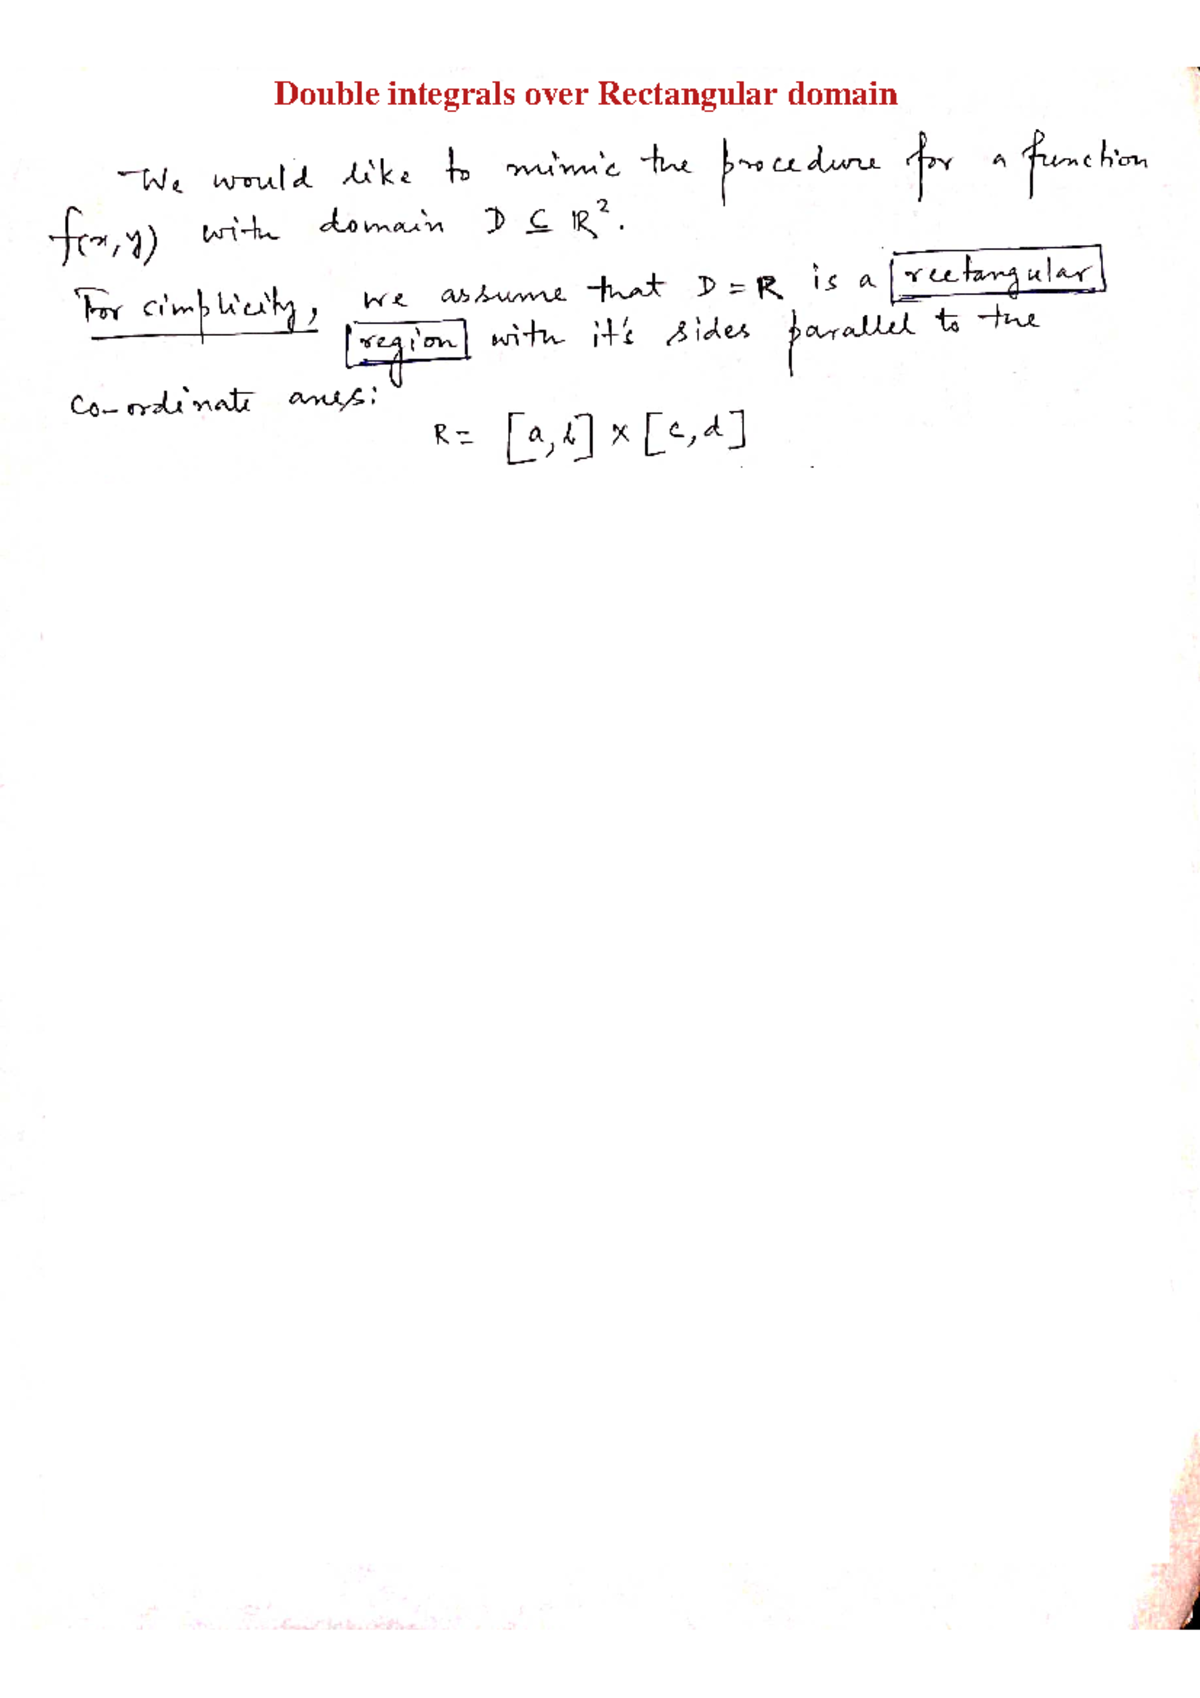 Double integrals over Rectangular domain
We would like to mimic the procedure for a function
f(x,y) with domain D ⊆ ℝ².
For simplicity, we assume that D = R is a rectangular
region with it's sides parallel to the
co-ordinate axes:
R = [a,b] × [c,d]